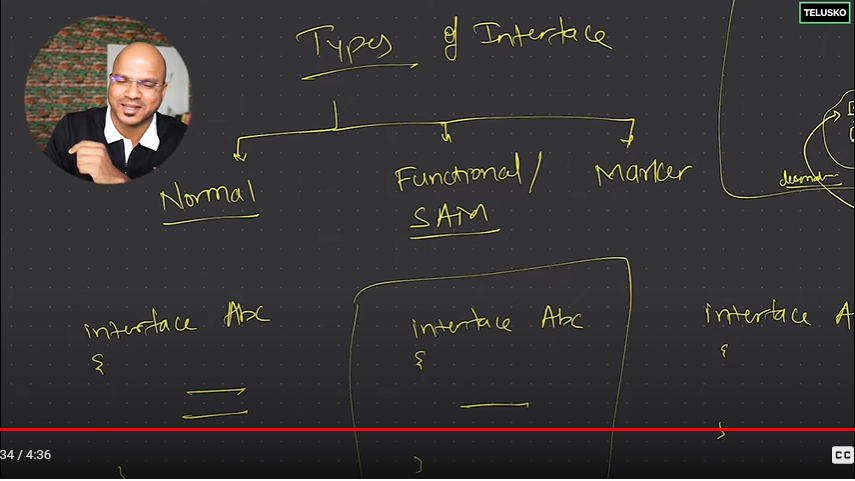 TELUSKO
Types of Interface
Normal
Functional/
SAM
Marker
interface Abc
{
}
interface Abc
{
}
interface A
{
}
34 / 4:36
CC